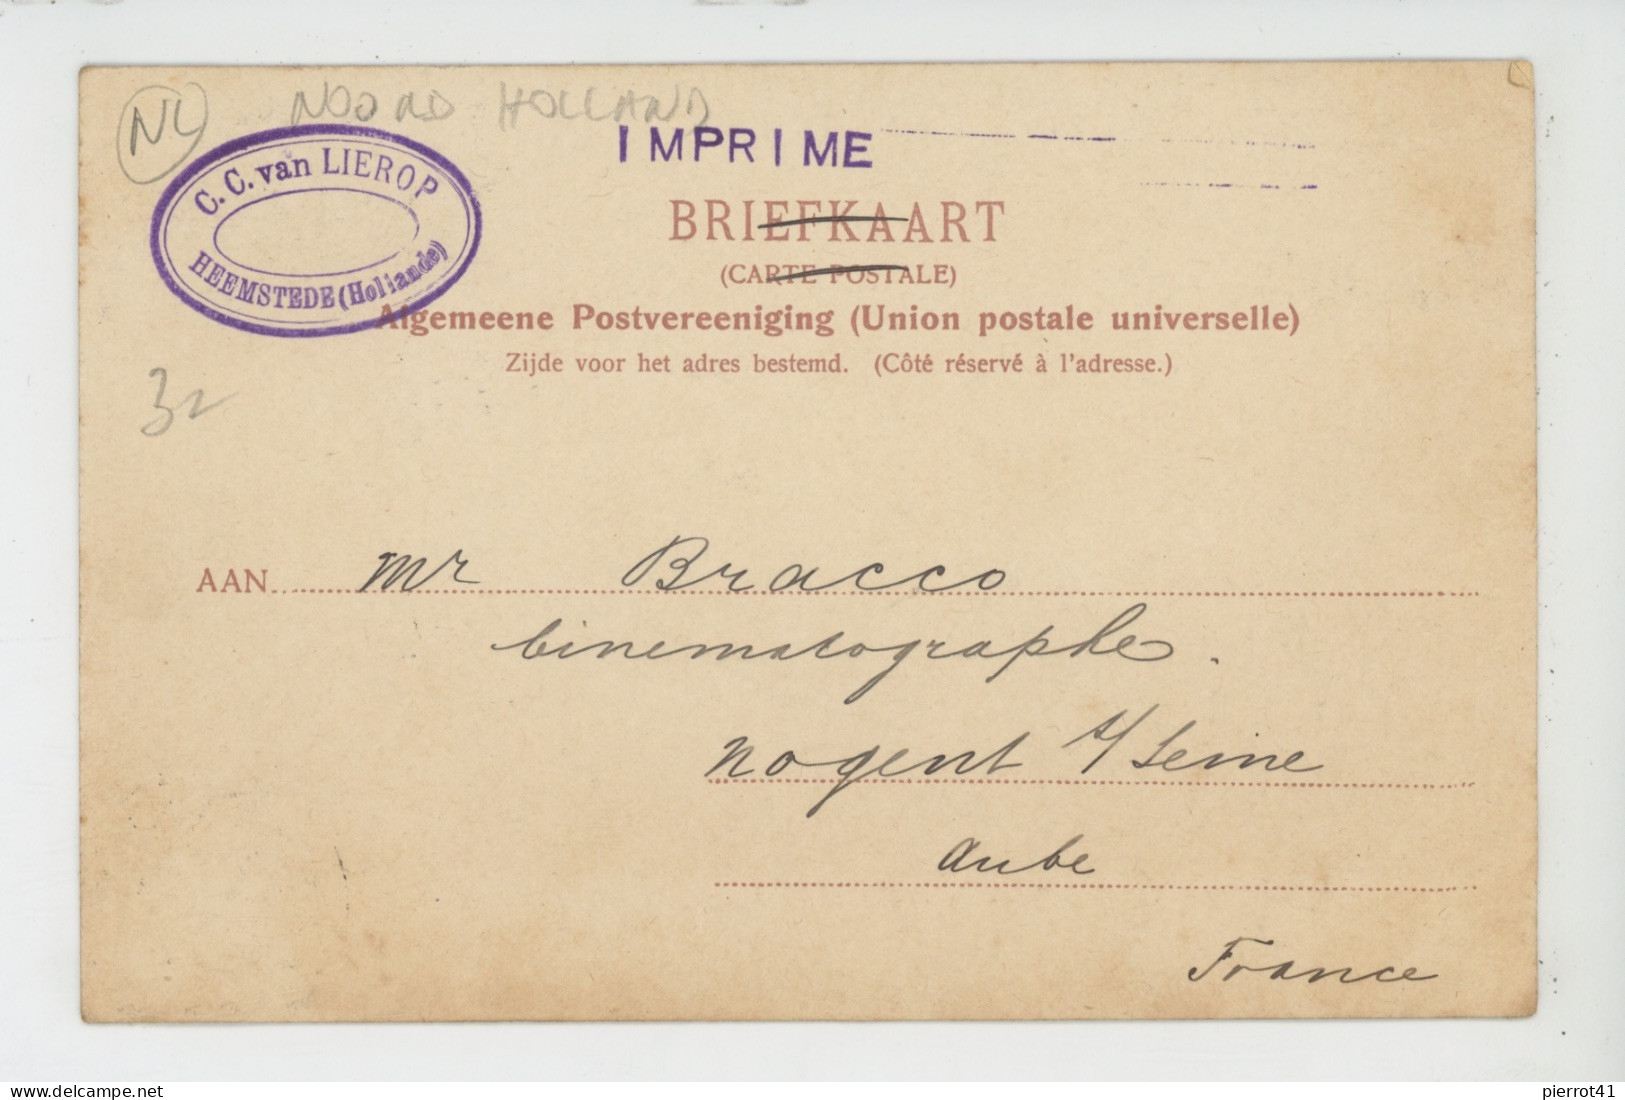 NL
NOORD HOLLAND
C. C. van LIEROP
HEEMSTEDE (Hollande)
IMPRIME
BRIEFKAART
(CARTE POSTALE)
Algemeene Postvereeniging (Union postale universelle)
Zijde voor het adres bestemd. (Côté réservé à l'adresse.)
32
AAN Mr Bracco
Cinematographe.
Nogent s/ Seine
Aube
France
https://www.delcampe.net
pierrot41